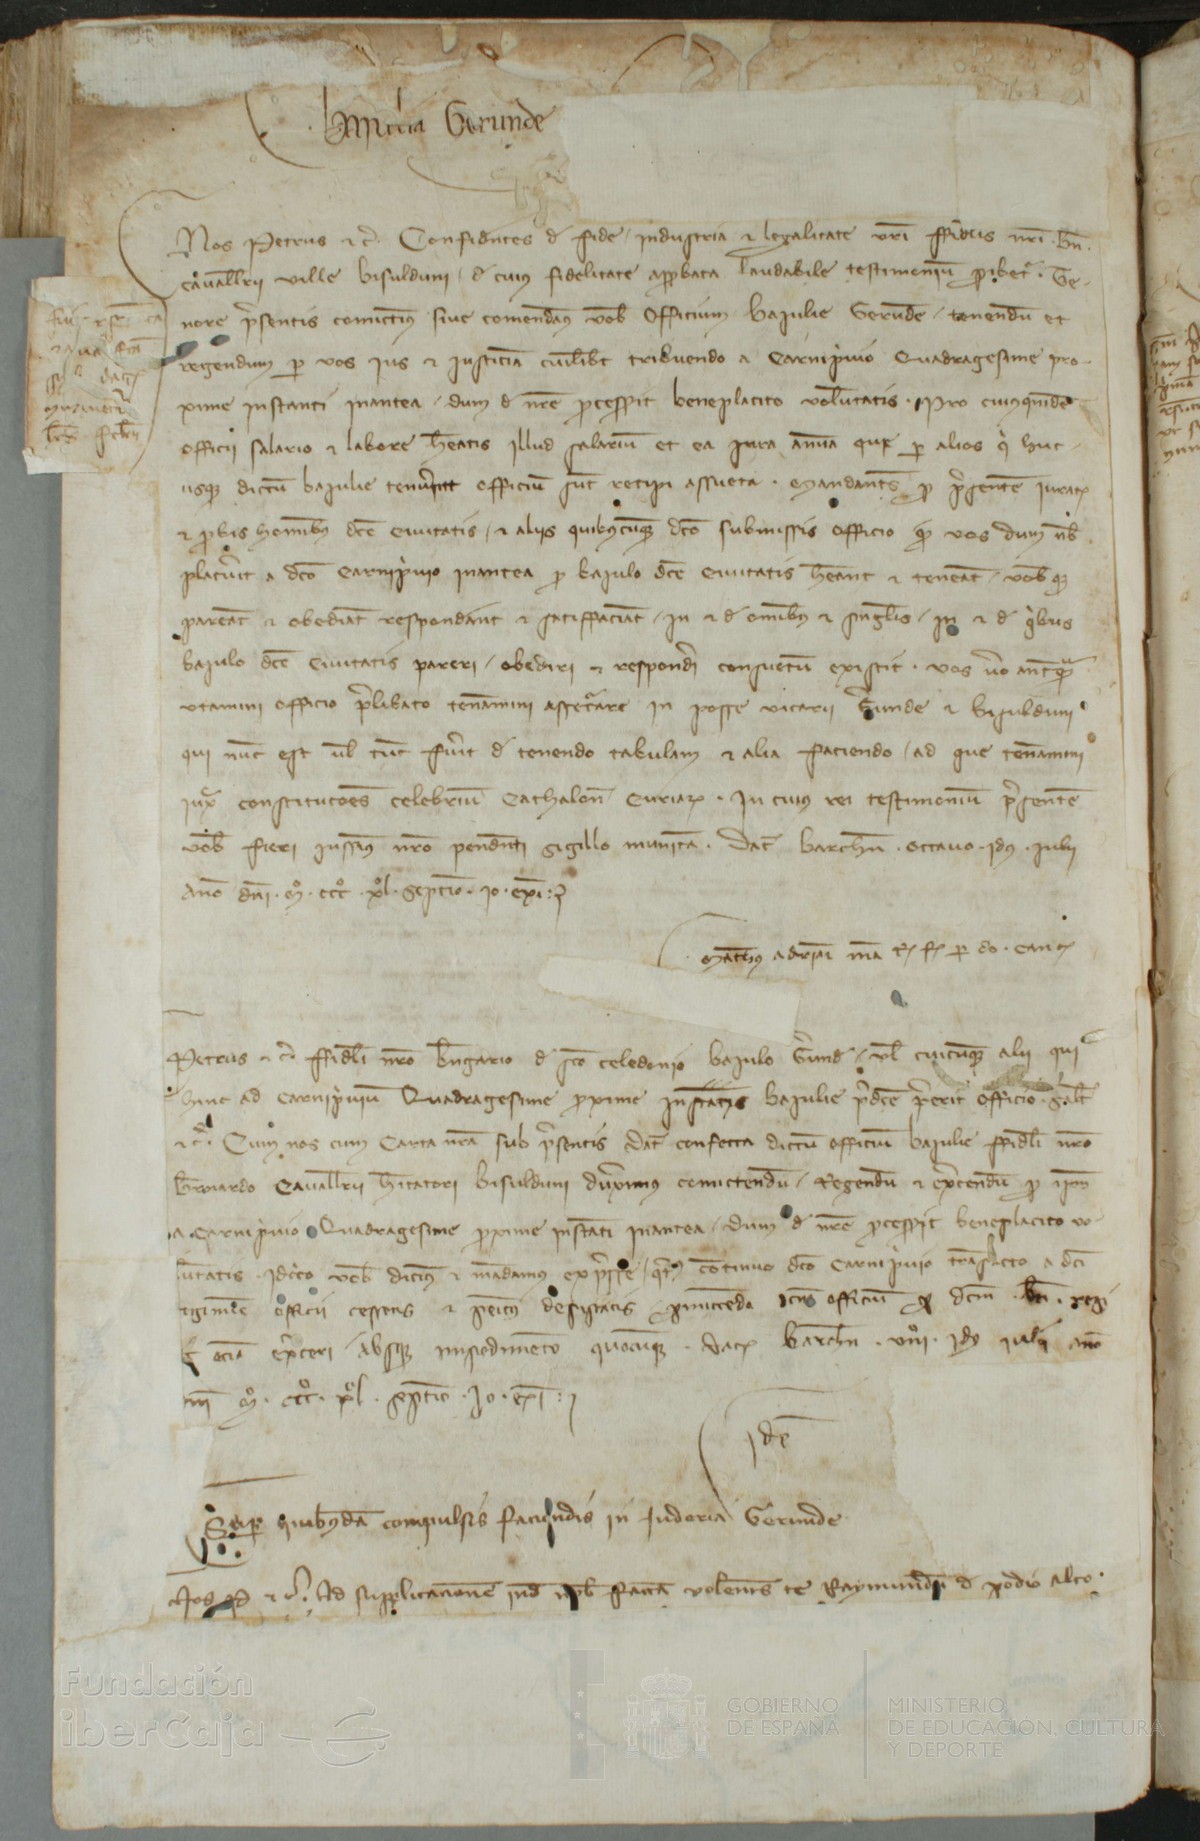 Bajulia Gerunde
Nos Petrus etc. Confidentes de fide industria et legalitate vri ffidelis nri Bn.
Cavallerii ville Bisulduni de cuius fidelitate approbata laudabile testimonium pribetr. Te-
nore psentis comictimus sive comendamus vob officium Bajulie Gerunde tenendum et
regendum p vos ius et justiciam cuilibet tribuendo a Carniprivio Quadragesime pro-
xime instanti inantea dum de nre pcesserit beneplacito voluntatis. Pro cuiusquidem
officii salario et labore heatis illud salarium et ea jura annua que p alios qi huc
usq dictum bajulie tenuerunt officium sunt recipi assueta. Mandantes p psentem juratis
et pbis hominibus dce Civitatis et aliis quibuscumq dco submissis officio q vos dum nob
placuerit a dco Carniprivio inantea p bajulo dce Civitatis heant et teneant vobq
pareant et obediant respondeant et satisffaciant in et de omnibus et singulis in et de qibus
bajulo dce Civitatis pareri obediri et responderi consuetum existit. Vos vo antequam
utamini officio plibato tenamini assecurare in posse vicarii Gerunde et Bisulduni
qui nunc est vel tunc fuerit de tenendo tabulam et alia faciendo ad que tenamini
juxta constitutiones celebrium Cathalon Curiarum. In cuius rei testimonium psentem
vob fieri jussimus nro pendenti sigillo munitam. Dat Barchn octavo idus julii
Anno dni mo ccco xlo septimo. Io. exa
Matheus Adriani ma R. f. p do. Canc.
Petrus etc. ffideli nro Bngario de sco Celedonio bajulo Gerund vel cuicumq alii qui
hinc ad Carniprivium Quadragesime proxime instantis Bajulie pdce perit officio salt
etc. Cum nos cum Carta nra sub psentis dat confecta dictum officium bajulie ffideli nro
Bernardo Cavallerii hitatori Bisulduni duximus comictendum regendum et exercendum p ipm
a Carniprivio Quadragesime proxime instanti inantea dum de nre pcesserit beneplacito vo-
luntatis. Idcirco vob dicimus et mandamus expresse qt continuo dco Carniprivio transacto a dci
regimine officii cessetis et penitus desistatis pmittendo ipsum officium p dcm Bn. regi
et eciam exerceri absq impedimento quocumq. Dat Barchn viiio idus julii anno
dni mo ccco xlo septimo. Io. exa
Idem
Super quibusdam compulsis faciendis in Juderia Gerunde
Nos P etc. Ad supplicacionem inde nob factam volentes te Raymundum de Podio alto
Fundación
iberCaja
GOBIERNO
DE ESPAÑA
MINISTERIO
DE EDUCACIÓN, CULTURA
Y DEPORTE